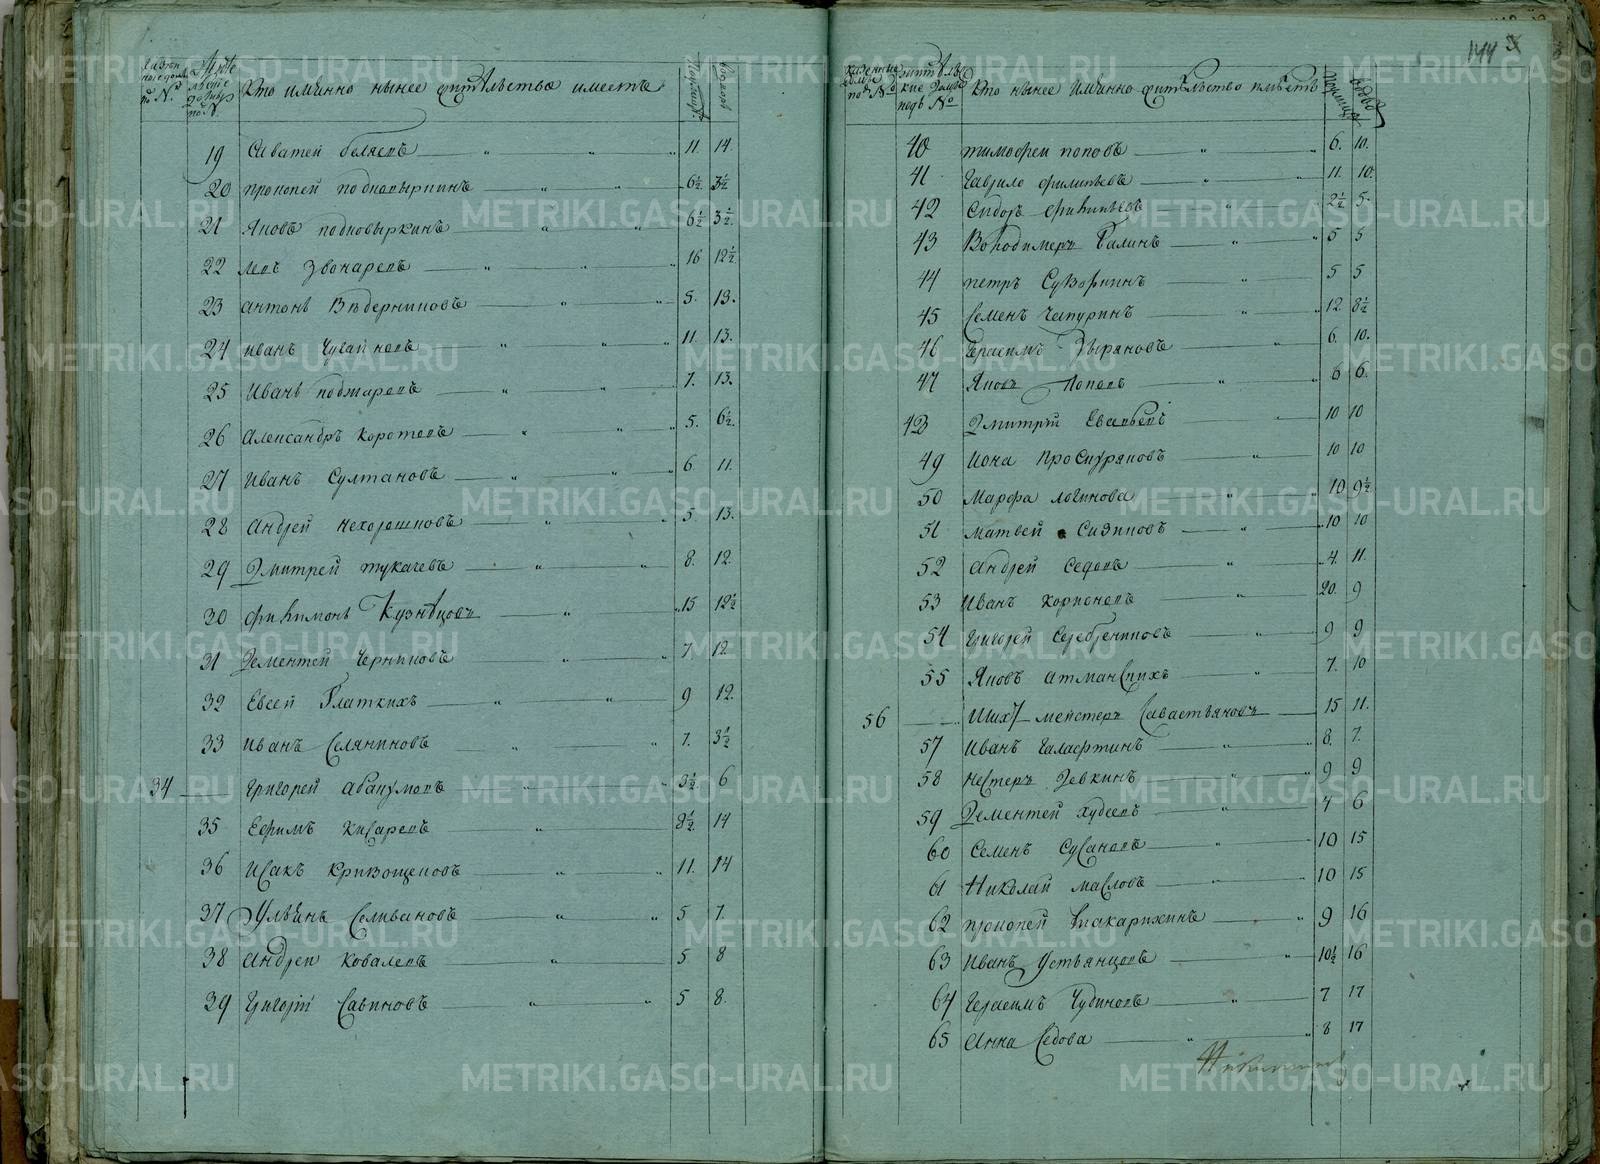 Кто именно ныне жительство имеетъ
19 Саватей Беляевъ 11 14
20 прокопей подковыркинъ 6½ 3½
21 Яковъ подковыркинъ 6½ 3½
22 левъ Звонаревъ 16 12½
23 антонъ Ведерниковъ 5 13
24 иванъ Чувайковъ 11 13
25 Иванъ поджаревъ 7 13
26 Александръ коротевъ 5 6½
27 Иванъ Султановъ 6 11
28 Андрей нехорошковъ 5 13
29 Дмитрей тукачевъ 8 12
30 филимонъ Кузнѣцовъ 15 12½
31 Дементей Черниковъ 7 12
32 Евсей Глаткихъ 9 12
33 иванъ Селяниновъ 7 3½
34 Григорей абакумовъ 3½ 6
35 Ефимъ кисаревъ 8½ 14
36 Исакъ кривощековъ 11 14
37 Ульянъ Селивановъ 5 7
38 Андреи ковалевъ 5 8
39 Григорій Савиновъ 5 8
144
Кто ныне имянно жительство имѣетъ
40 тимофеи поповъ 6 10
41 Гаврило филипьевъ 11 10
42 Сидоръ филипьевъ 2½ 5
43 Володимеръ Галинъ 5 5
44 петръ Суворкинъ 5 5
45 Семенъ Чепуринъ 12 8½
46 Герасимъ Зыряновъ 6 10
47 Яковъ Поповъ 6 6
48 Дмитрій Евсевьевъ 10 10
49 Иона проскуряковъ 10 10
50 Марфа логинова 10 9½
51 матвей Сизиковъ 10 10
52 андрей Седовъ 4 11
53 Иванъ корионовъ 20 9
54 Григорей Серебрениковъ 9 9
55 Яковъ атманскихъ 7 10
56 Шихтмейстеръ Савастьяновъ 15 11
57 Иванъ Галафтинъ 8 7
58 нестеръ Ревкинъ 9 9
59 Дементей худеевъ 4 6
60 Семенъ Сусановъ 10 15
61 Николай масловъ 10 15
62 прокопей макарихинъ 9 16
63 Иванъ Устьянцовъ 10½ 16
64 Герасимъ Чудиновъ 7 17
65 Анна Седова 8 17
METRIKI.GASO-URAL.RU